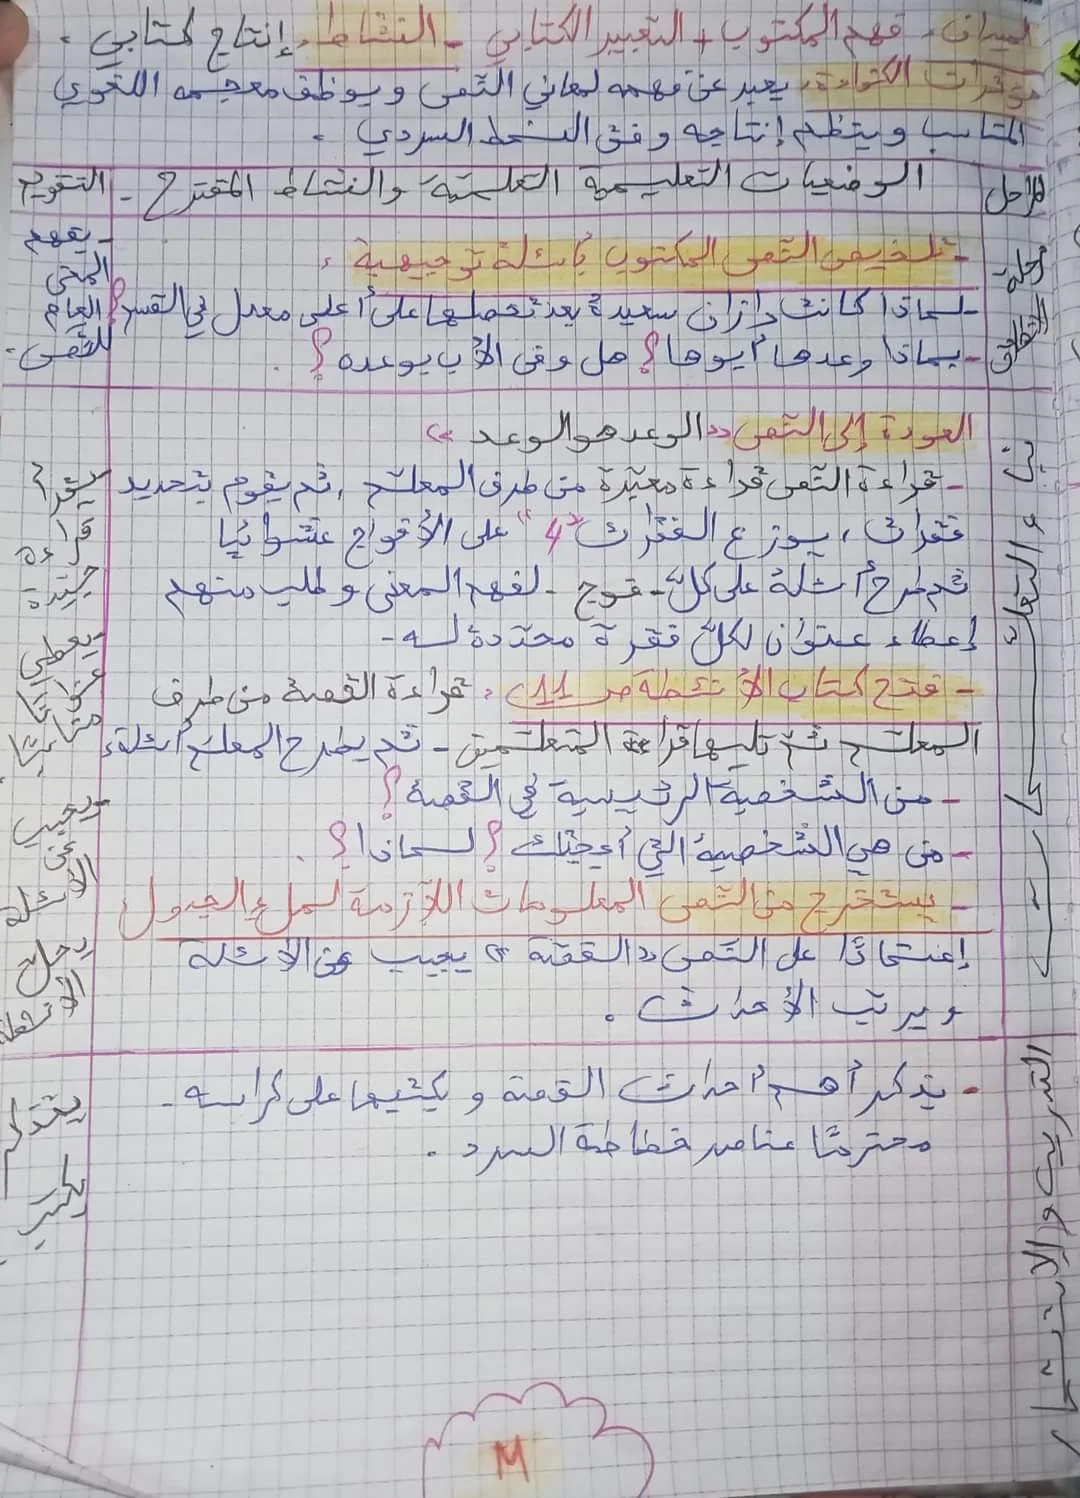 الميدان: فهم المكتوب + التعبير الكتابي - النشاط: إنتاج كتابي .
مؤشرات الكفاءة: يعبر عن فهمه لمعاني النص ويوظف معجمه اللغوي
المناسب وينظم إنتاجه وفق النمط السردي .
المراحل
الوضعيات التعليمية التعلمية والنشاط المقترح -
التقويم
مرحلة الانطلاق
- تلخيص النص المكتوب بأسئلة توجيهية :
- لماذا كانت رزان سعيدة بعد تحصلها على أعلى معدل في القسم؟
- بماذا وعدها أبوها؟ هل وفى الأب بوعده؟
- يفهم
المعنى
العام
للنص.
بناء التعلمات
العودة إلى النص "الوعد هو الوعد"
- قراءة النص قراءة معبّرة من طرف المعلم ، ثم يقوم بتحديد
فقرات ، يوزع الفقرات "4" على الأفواج عشوائيا
ثم طرح أسئلة على كلّ - فوج - لفهم المعنى وطلب منهم
إعطاء عنوان لكلّ فقرة محدّدة له -
- فتح كتاب الأنشطة ص 11 : قراءة القصة من طرف
المعلم ثم تليها قراءة المتعلمين - ثم يطرح المعلم أسئلة:
- من الشخصية الرئيسية في القصة؟
- من هي الشخصية التي أعجبتك؟ لماذا؟ .
- يستخرج من النص المعلومات اللازمة لملء الجدول
إعتمادًا على النص "القصة" يجيب عن الأسئلة
ويرتب الأحداث .
يقرأ
قراءة
جيدة
- يعطي
عنوانا
مناسبا
- يجيب
عن
الأسئلة
يحل
الأنشطة
التدريب والاستثمار
- يتذكر أهم أحداث القصة ويكتبها على كراسه -
محترمًا عناصر خطاطة السرد .
يتذكر
يكتب
M